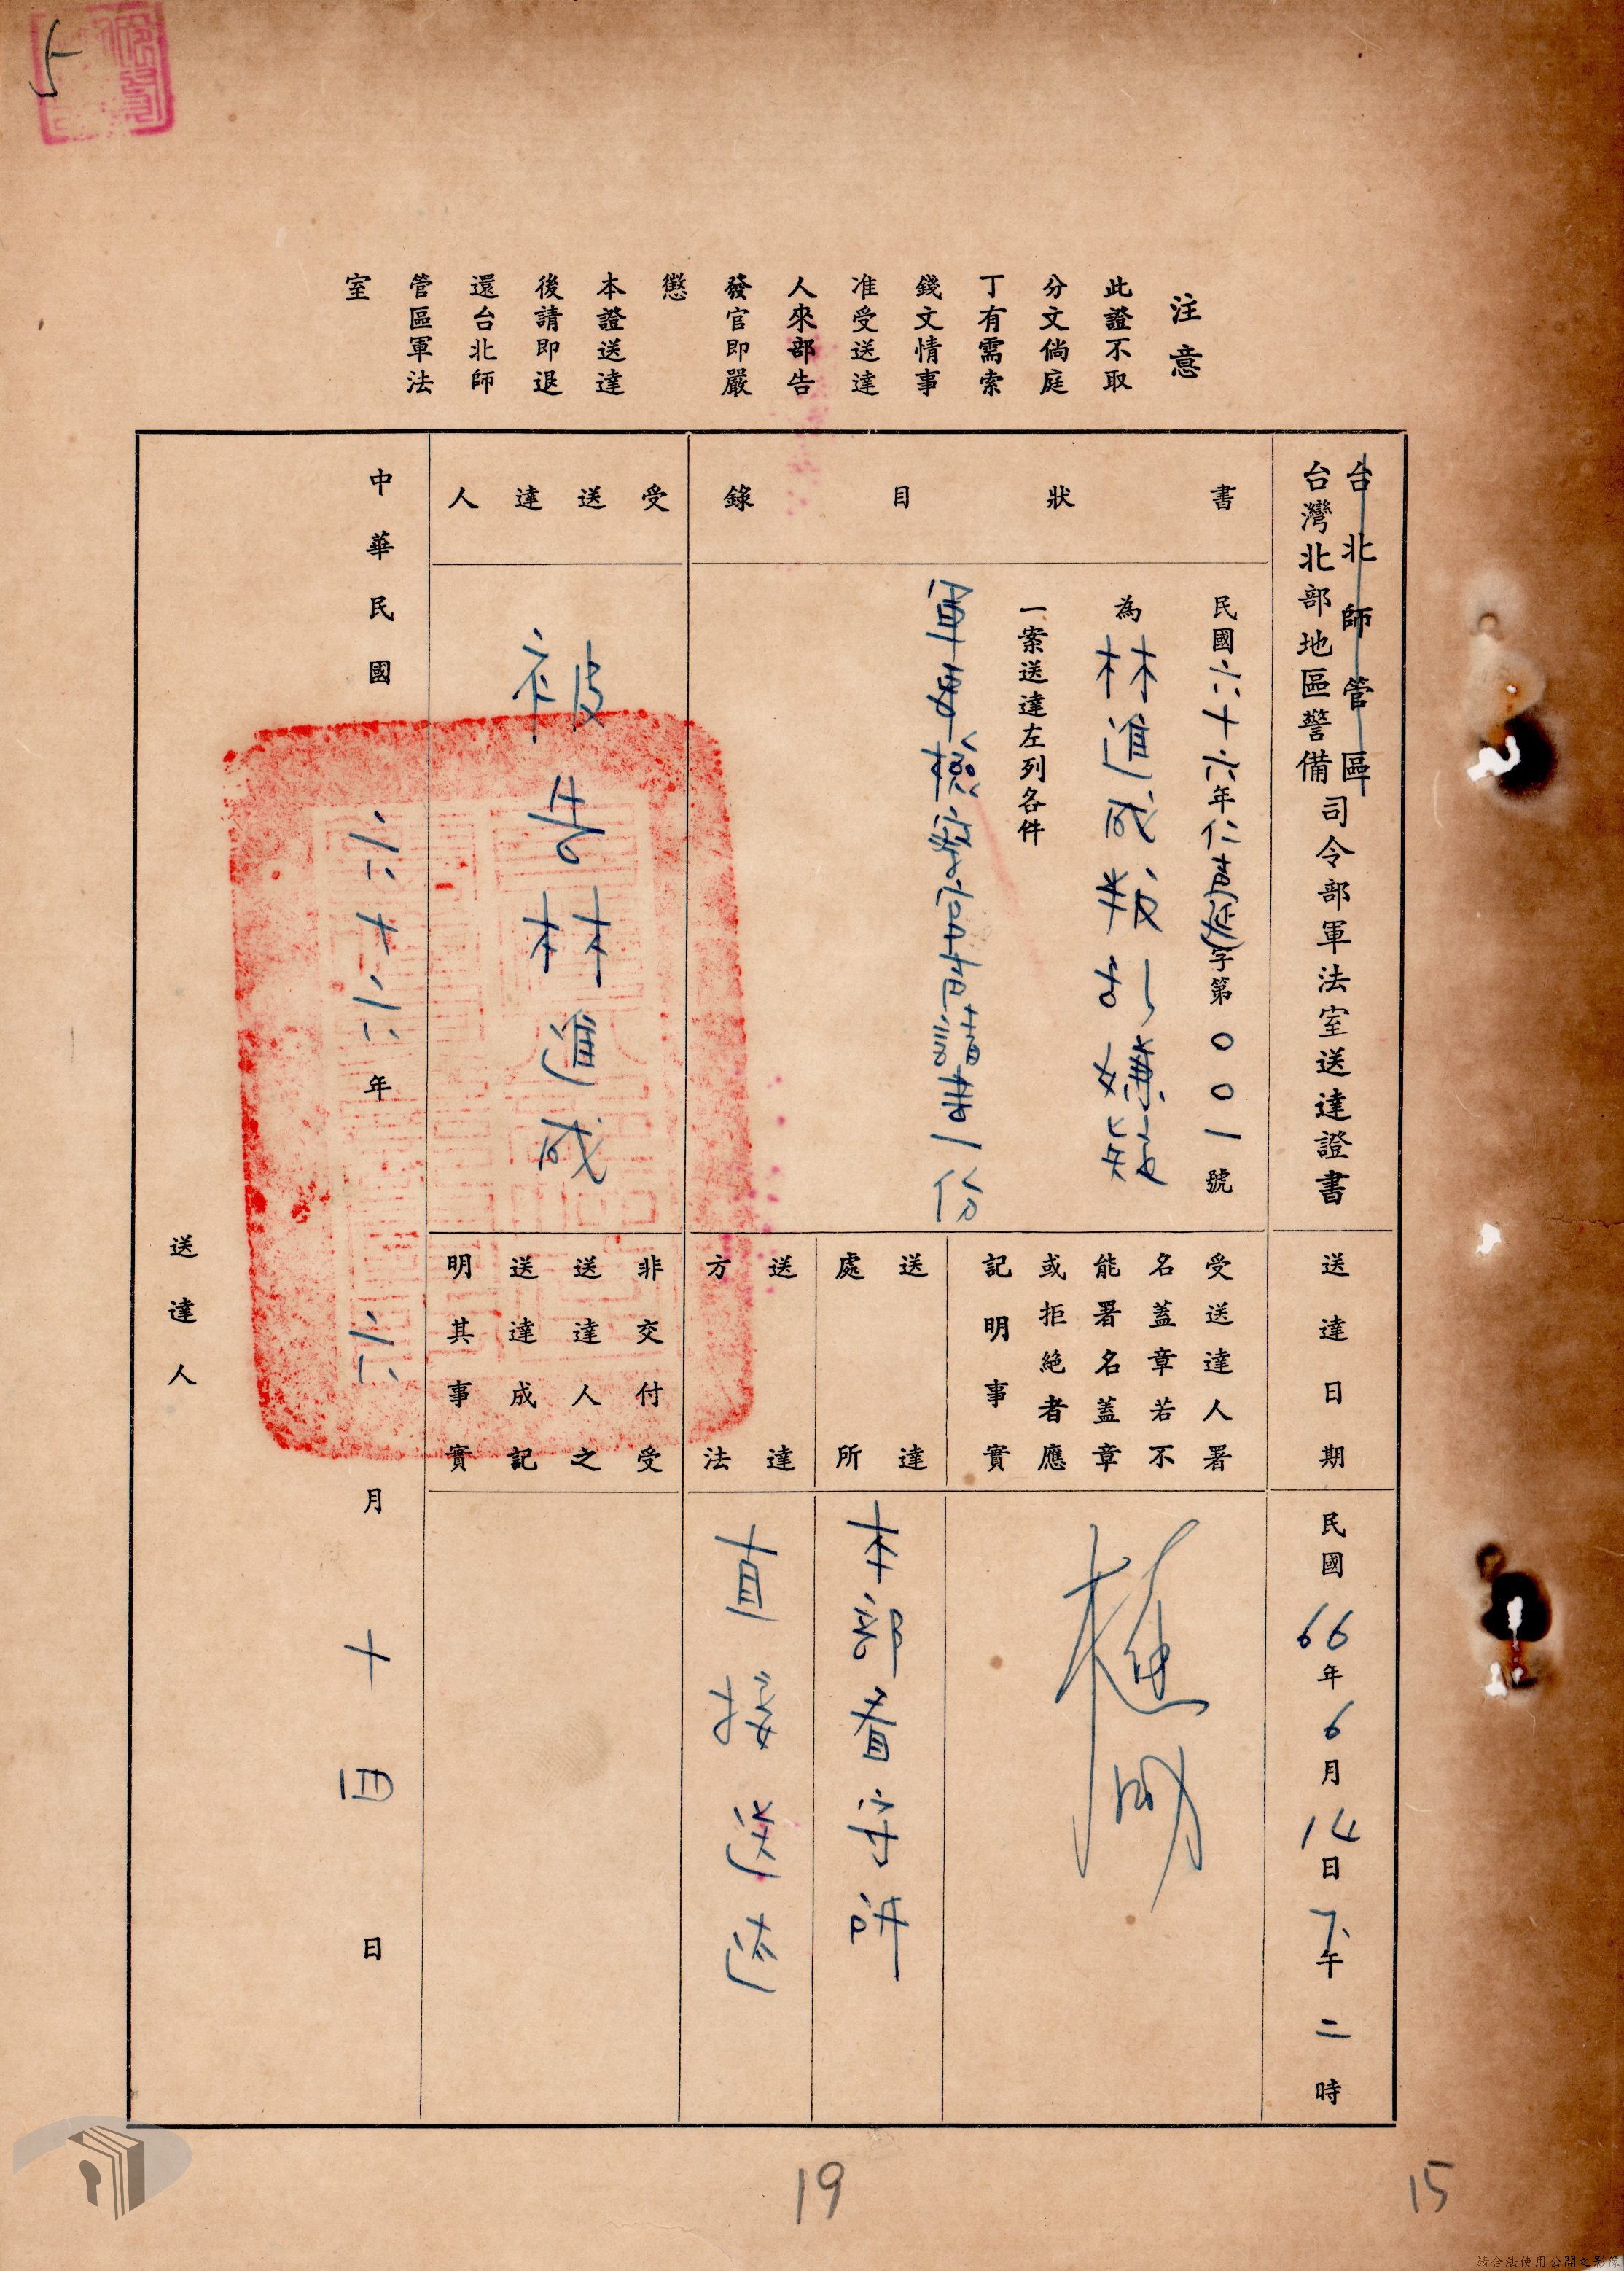 注意
此證不取
分文倘庭
丁有需索
錢文情事
准受送達
人來部告
發官即嚴
懲
本證送達
後請即退
還台北師
管區軍法
室
台北師管區
台灣北部地區警備
司令部軍法室送達證書
書狀目錄
民國六十六年仁青延字第001號
為林進成叛亂嫌疑
一案送達左列各件
軍事檢察官聲請書一份
受送達人
被告林進成
送達日期
民國66年6月14日下午二時
受送達人署
名蓋章若不
能署名蓋章
或拒絕者應
記明事實
送達
處所
本部看守所
送達
方法
直接送達
非交付受
送達人之
送達成記
明其事實
中華民國六十六年六月十四日
送達人
19
15
請合法使用公開之影像